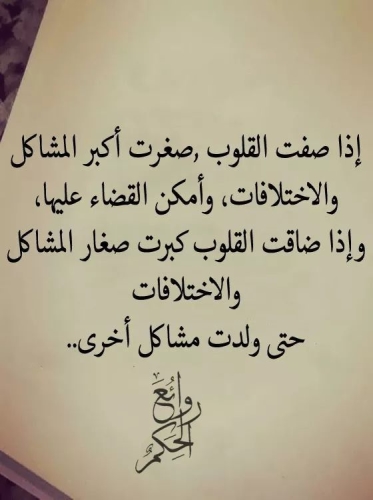 إذا صفت القلوب ,صغرت أكبر المشاكل
والاختلافات، وأمكن القضاء عليها،
وإذا ضاقت القلوب كبرت صغار المشاكل
والاختلافات
حتى ولدت مشاكل أخرى..
روائع
الحكم